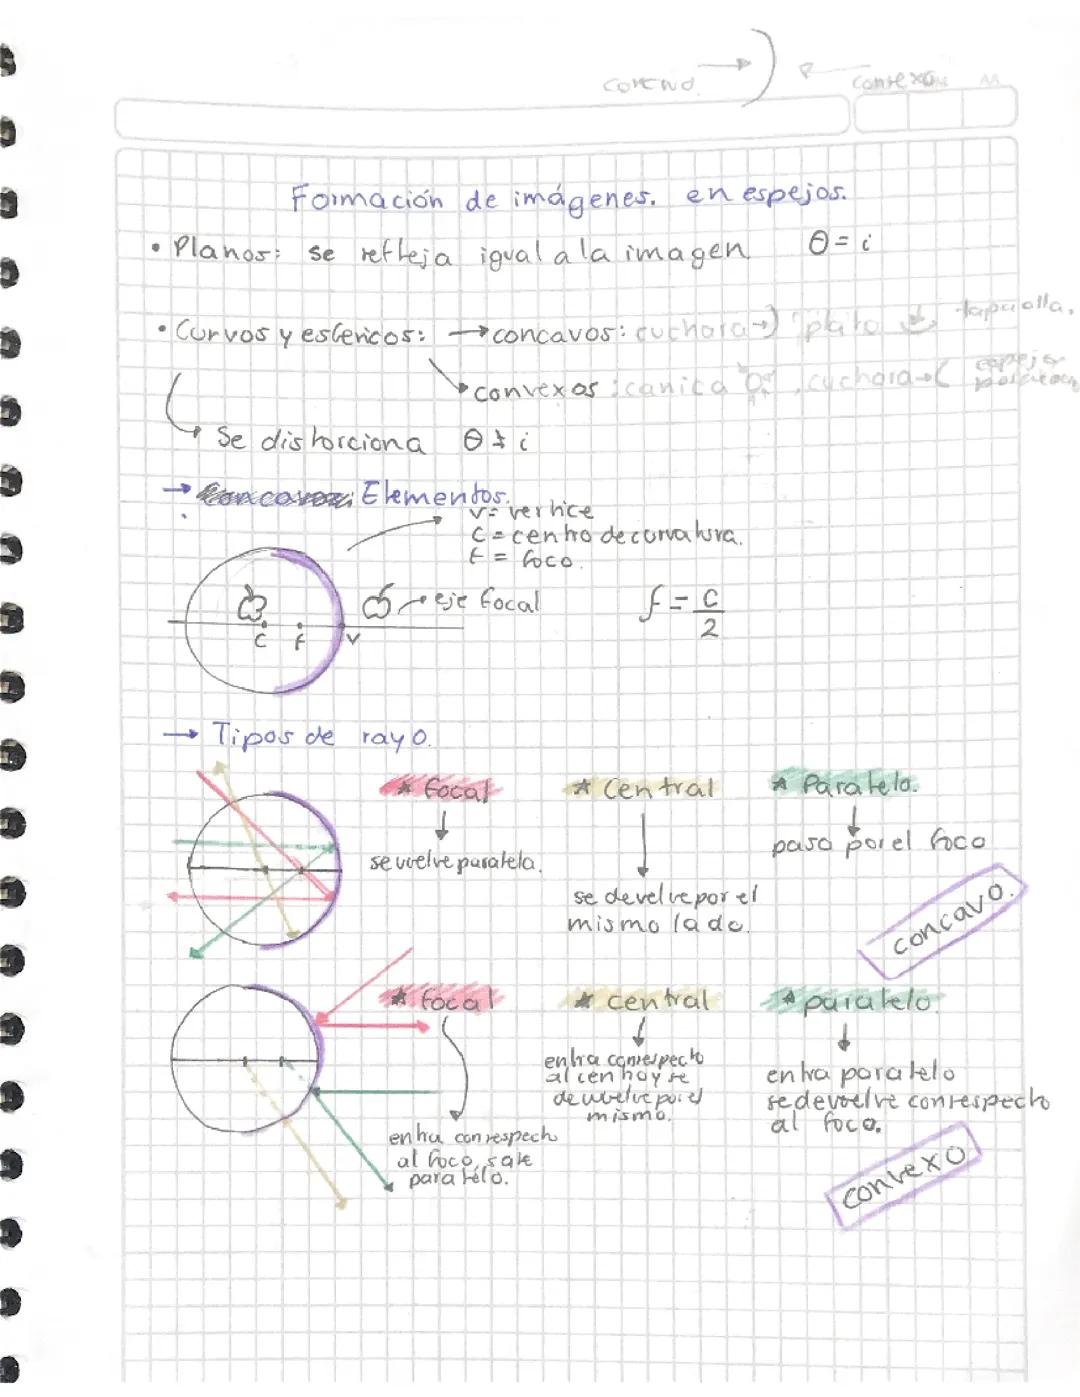 concavo → ) ← convexo
Formación de imágenes. en espejos.
• Planos: se refleja igual a la imagen θ = i
• Curvos y esfericos: → concavos: cuchara→) plato tapa olla.
convexos: canica, cuchara→( espejo
Se distorciona θ ≠ i
→ Elementos.
v = vertice
C = centro de curvatura.
f = foco.
eje focal
f = C/2
C F V
→ Tipos de rayo.
* focal * Central * Paralelo.
se vuelve paralela.
paso por el foco
se develve por el
mismo lado.
concavo.
* focal * central * paralelo.
entra con respecto
al foco, sale
paralelo.
entra conrespecto
al centro y se
devuelve por el
mismo.
entra paralelo
se devuelve con respecto
al foco.
convexo